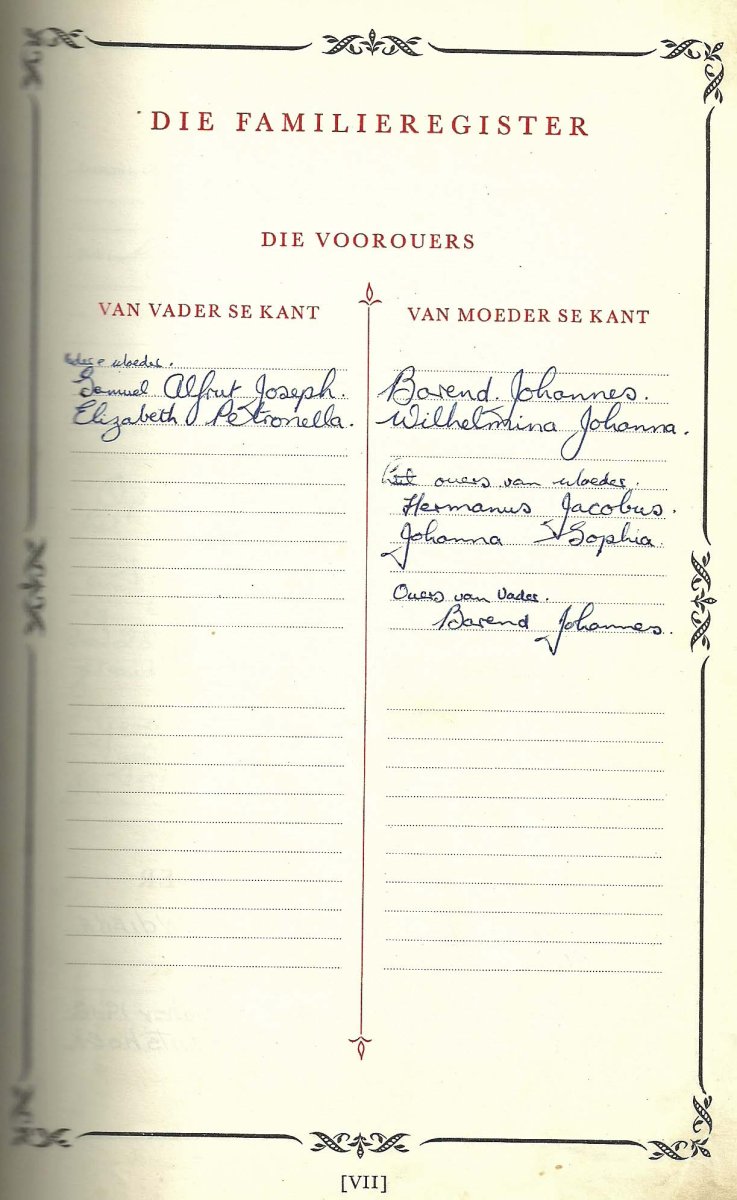 DIE FAMILIEREGISTER
DIE VOOROUERS
VAN VADER SE KANT
moeder.
Samuel Alfrut Joseph.
Elizabeth Petronella.
VAN MOEDER SE KANT
Barend. Johannes.
Wilhelmina Johanna.
ouers van moeder.
Hermanus Jacobus.
Johanna Sophia.
Ouers van Vader.
Barend Johannes.
[VII]